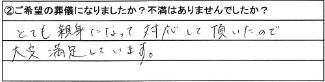 ②ご希望の葬儀になりましたか？不満はありませんでしたか？
とても親身になって対応して頂いたので
大変満足しています。